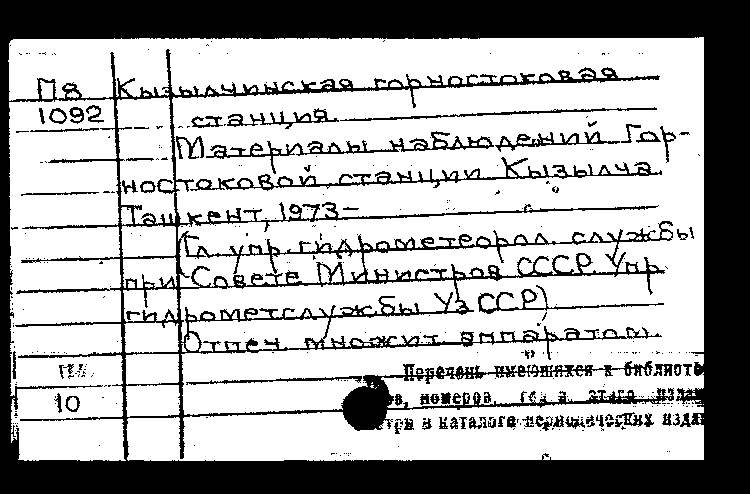 П8 Кызылчинская горностоковая
1092 станция.
Материалы наблюдений Гор-
ностоковой станции Кызылча.
Ташкент, 1973-
(Гл. упр. гидрометеорол. службы
при Совете Министров СССР. Упр.
гидрометслужбы УзССР)
Отпеч. множит. аппаратом.
Перечень имеющихся в библиоте
10 ов, номеров, год а этого издан
отри в каталоге периодических издан